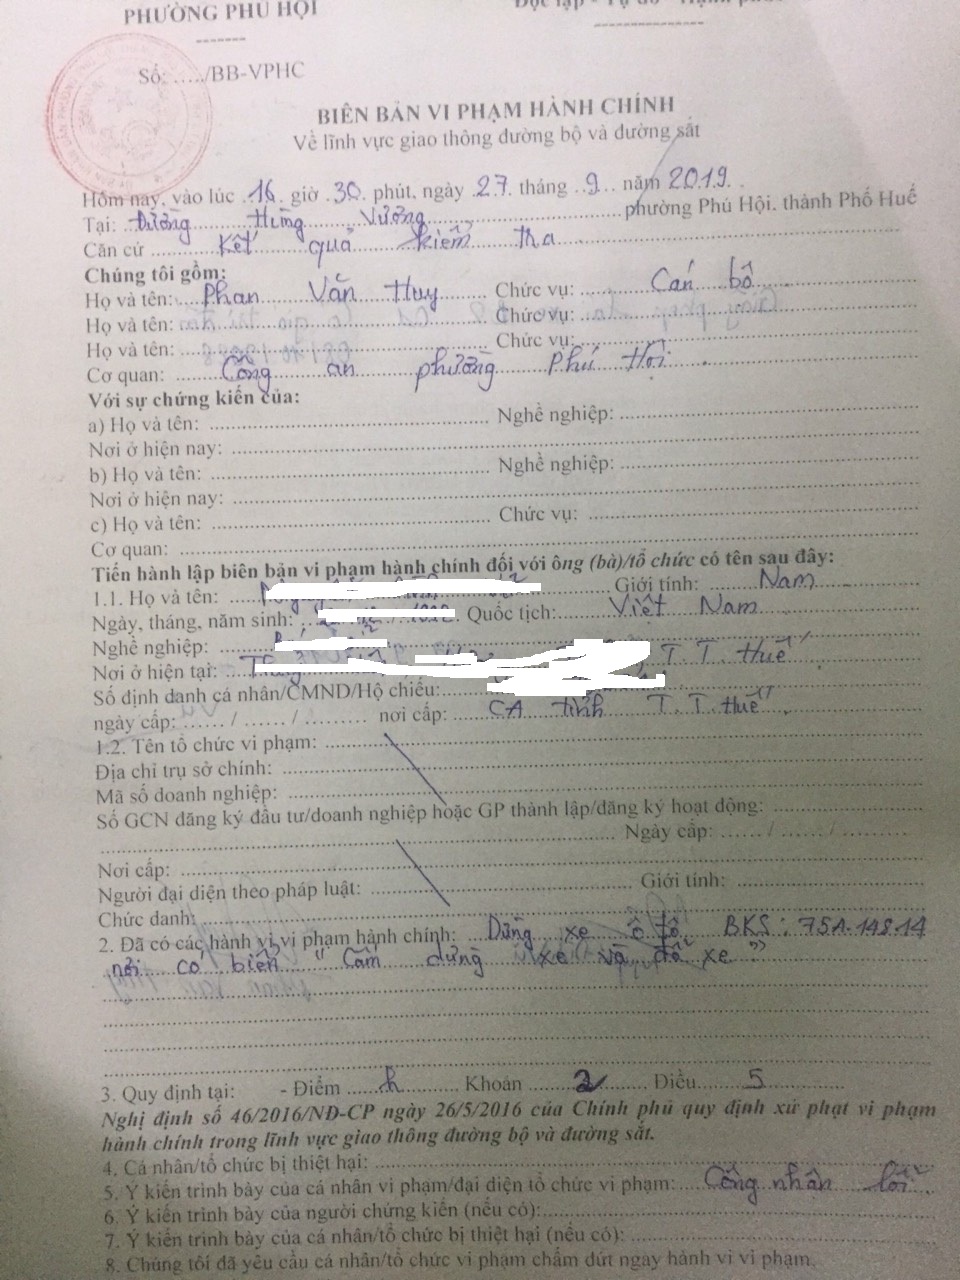 PHƯỜNG PHÚ HỘI
Độc lập - Tự do - Hạnh phúc
Số: ...../BB-VPHC
BIÊN BẢN VI PHẠM HÀNH CHÍNH
Về lĩnh vực giao thông đường bộ và đường sắt
Hôm nay, vào lúc 16 giờ 30 phút, ngày 27 tháng 9 năm 2019.
Tại: Đường Hùng Vương phường Phú Hội. thành Phố Huế
Căn cứ Kết quả kiểm tra
Chúng tôi gồm:
Họ và tên: Phan Văn Huy Chức vụ: Cán bộ
Họ và tên: Chức vụ:
Họ và tên: Chức vụ:
Cơ quan: Công an phường Phú Hội
Với sự chứng kiến của:
a) Họ và tên: Nghề nghiệp:
Nơi ở hiện nay:
b) Họ và tên: Nghề nghiệp:
Nơi ở hiện nay:
c) Họ và tên: Chức vụ:
Cơ quan:
Tiến hành lập biên bản vi phạm hành chính đối với ông (bà)/tổ chức có tên sau đây:
1.1. Họ và tên: Giới tính: Nam
Ngày, tháng, năm sinh: Quốc tịch: Việt Nam
Nghề nghiệp:
Nơi ở hiện tại: T.T. Huế
Số định danh cá nhân/CMND/Hộ chiếu:
ngày cấp: ...... / ...... / ......... nơi cấp: CA tỉnh T.T. Huế
1.2. Tên tổ chức vi phạm:
Địa chỉ trụ sở chính:
Mã số doanh nghiệp:
Số GCN đăng ký đầu tư/doanh nghiệp hoặc GP thành lập/đăng ký hoạt động:
Ngày cấp: ...... / ...... / ......
Nơi cấp:
Người đại diện theo pháp luật: Giới tính:
Chức danh:
2. Đã có các hành vi vi phạm hành chính: Dừng xe ô tô BKS: 75A-148.14
nơi có biển "Cấm dừng xe và đỗ xe"
3. Quy định tại: - Điểm h Khoản 2 Điều 5
Nghị định số 46/2016/NĐ-CP ngày 26/5/2016 của Chính phủ quy định xử phạt vi phạm
hành chính trong lĩnh vực giao thông đường bộ và đường sắt.
4. Cá nhân/tổ chức bị thiệt hại:
5. Ý kiến trình bày của cá nhân vi phạm/đại diện tổ chức vi phạm: Công nhận lỗi
6. Ý kiến trình bày của người chứng kiến (nếu có):
7. Ý kiến trình bày của cá nhân/tổ chức bị thiệt hại (nếu có):
8. Chúng tôi đã yêu cầu cá nhân/tổ chức vi phạm chấm dứt ngay hành vi vi phạm.